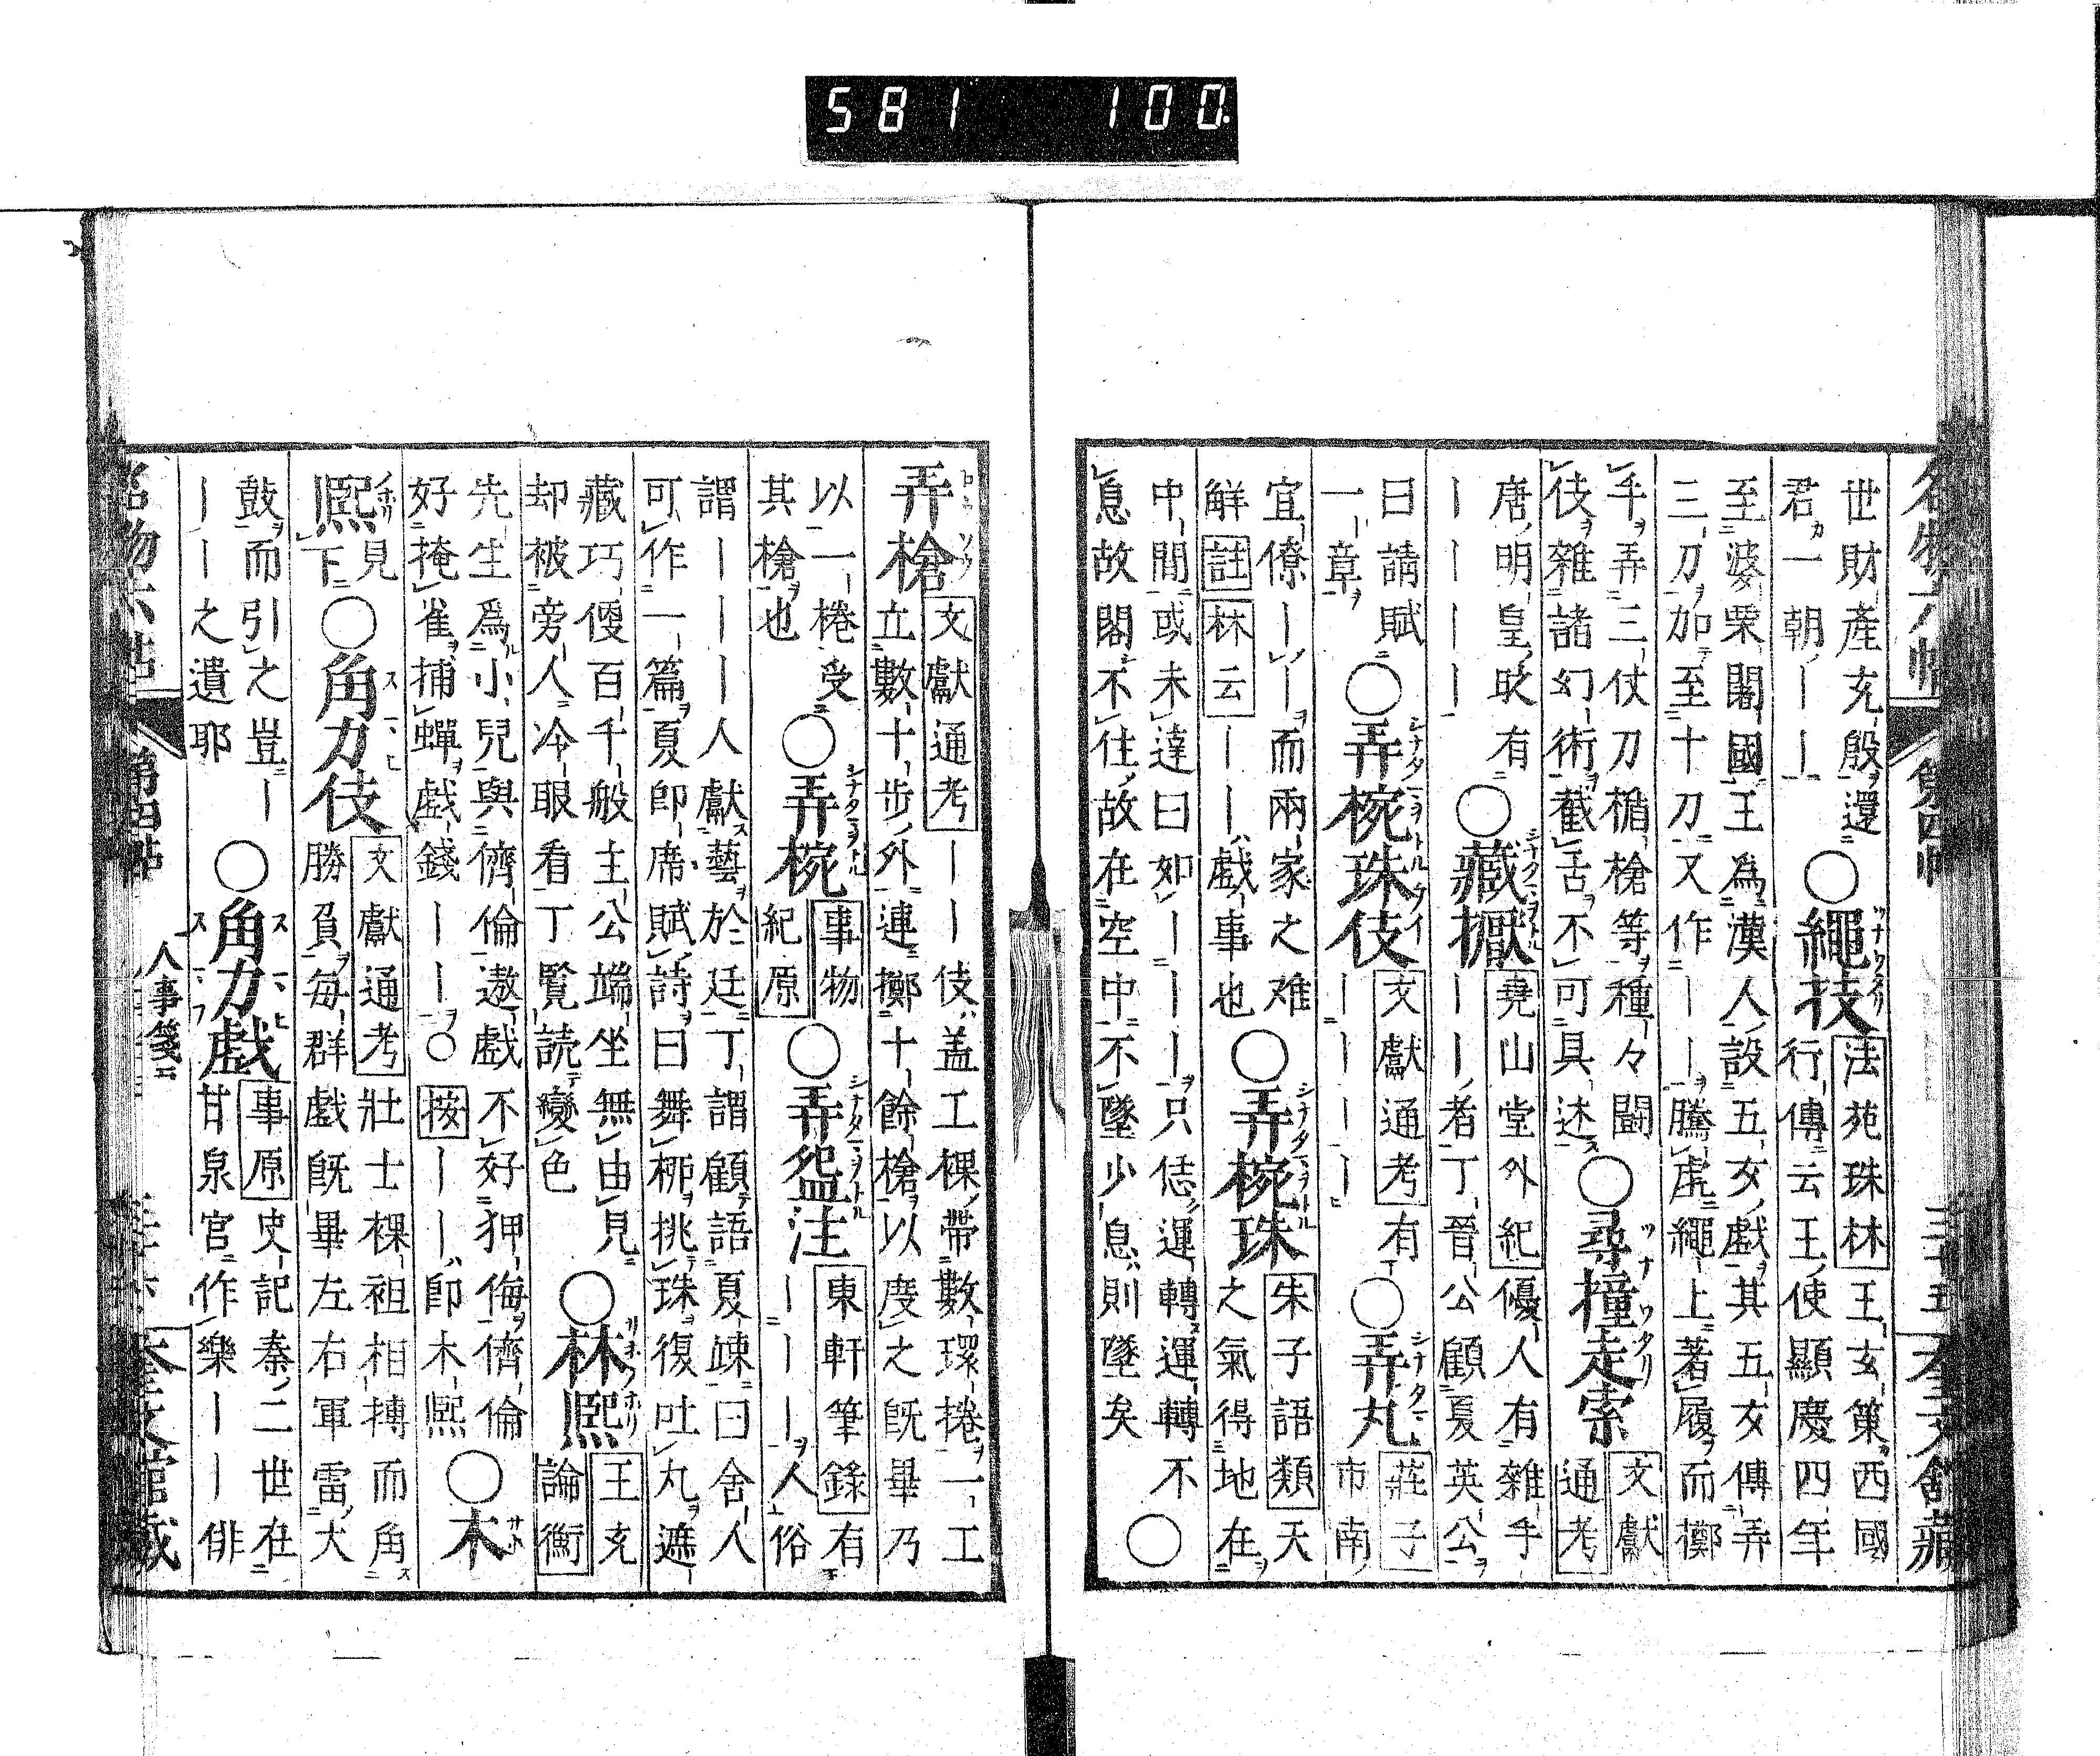 名物六帖 第四帖 三十五 奎文館藏
世財產充殷還
君一朝｜｜
○繩技
法苑珠林王玄策西國
行傳云王使顯慶四年
至婆栗闍國王為漢人設五女戲其五女傳弄
三刀加至十刀又作｜｜騰虛繩上著履而擲
手弄三仗刀楯槍等種々闘
伎雜諸幻術截舌不可具述
○尋撞走索
文獻
通考
唐明皇時有
｜｜｜｜
○藏擫
堯山堂外紀優人有雜手
｜｜者丁晉公顧夏英公
曰請賦
一章
○弄椀珠伎
文獻通考有
｜｜｜｜
○弄丸
莊子
市南
宜僚｜｜而兩家之难
解註林云｜｜戲事也
○弄椀珠
朱子語類天
之氣得地在
中間或未達曰如｜｜｜只恁運轉運轉不
息故閣不住故在空中不墜少息則墜矣
○
弄槍
文獻通考｜｜伎盖工裸帶數環捲一工
立數十步外連擲十餘槍以度之既畢乃
以一捲受
其槍也
○弄椀
事物
紀原
○弄盌注
東軒筆錄有
｜｜｜人俗
謂｜｜｜人獻藝於廷丁謂顧語夏竦曰舍人
可作一篇夏卽席賦詩曰舞栁挑珠復吐丸遮
藏巧便百千般主公端坐無由見
却被旁人冷眼看丁覽読變色
○林熙
王充
論衡
先生為小兒與儕倫遨戲不好狎侮儕倫
好掩雀捕蟬戲錢｜｜○按｜｜卽木熙
○木
熙
見
下
○角力伎
文獻通考壯士裸袒相搏而角
勝負每群戲既畢左右軍雷大
鼓而引之豈｜
｜｜之遺耶
○角力戲
事原史記秦二世在
甘泉宮作樂｜｜俳
名物六帖 第四帖 人事箋二 奎文館藏
581 100